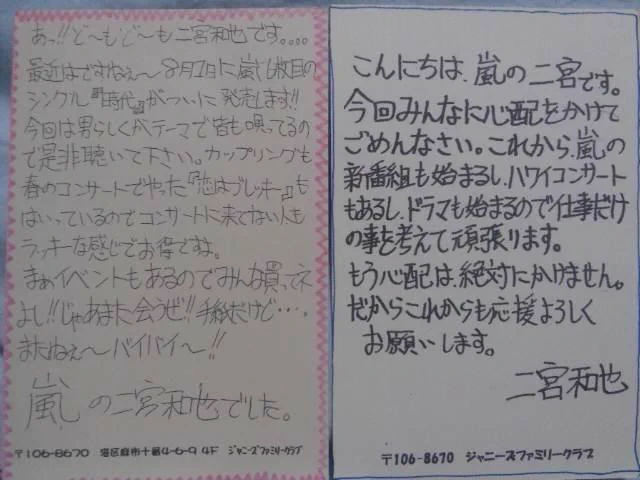 あっ!!ど〜もど〜も二宮和也です。。。。
最近はですねぇ〜8月1日に嵐6枚目の
シングル『時代』がついに発売します!!
今回は男らしくがテーマで皆も唄ってるの
で是非聴いて下さい。カップリングも
春のコンサートでやった『恋はブレッキー』も
はいっているのでコンサートに来てない人も
ラッキーな感じでお得ですよ。
まぁイベントもあるのでみんな買ってネ
よし!!じゃあまた会うぜ!!手紙だけど・・・。
またねぇ〜バイバイ〜!!
嵐の二宮和也でした。
〒106-8670 港区麻布十番4-6-9 4F ジャニーズファミリークラブ
こんにちは、嵐の二宮です。
今回みんなに心配をかけて
ごめんなさい。これから、嵐の
新番組も始まるし、ハワイコンサート
もあるし、ドラマも始まるので仕事だけ
の事を考えて頑張ります。
もう心配は、絶対にかけません。
だからこれからも応援よろしく
お願いします。
二宮和也
〒106-8670 ジャニーズファミリークラブ